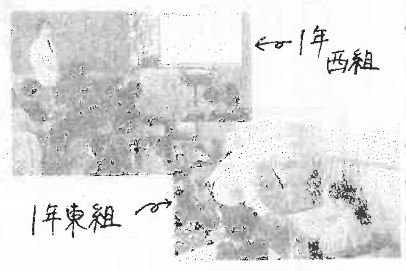 1年
西組
1年東組